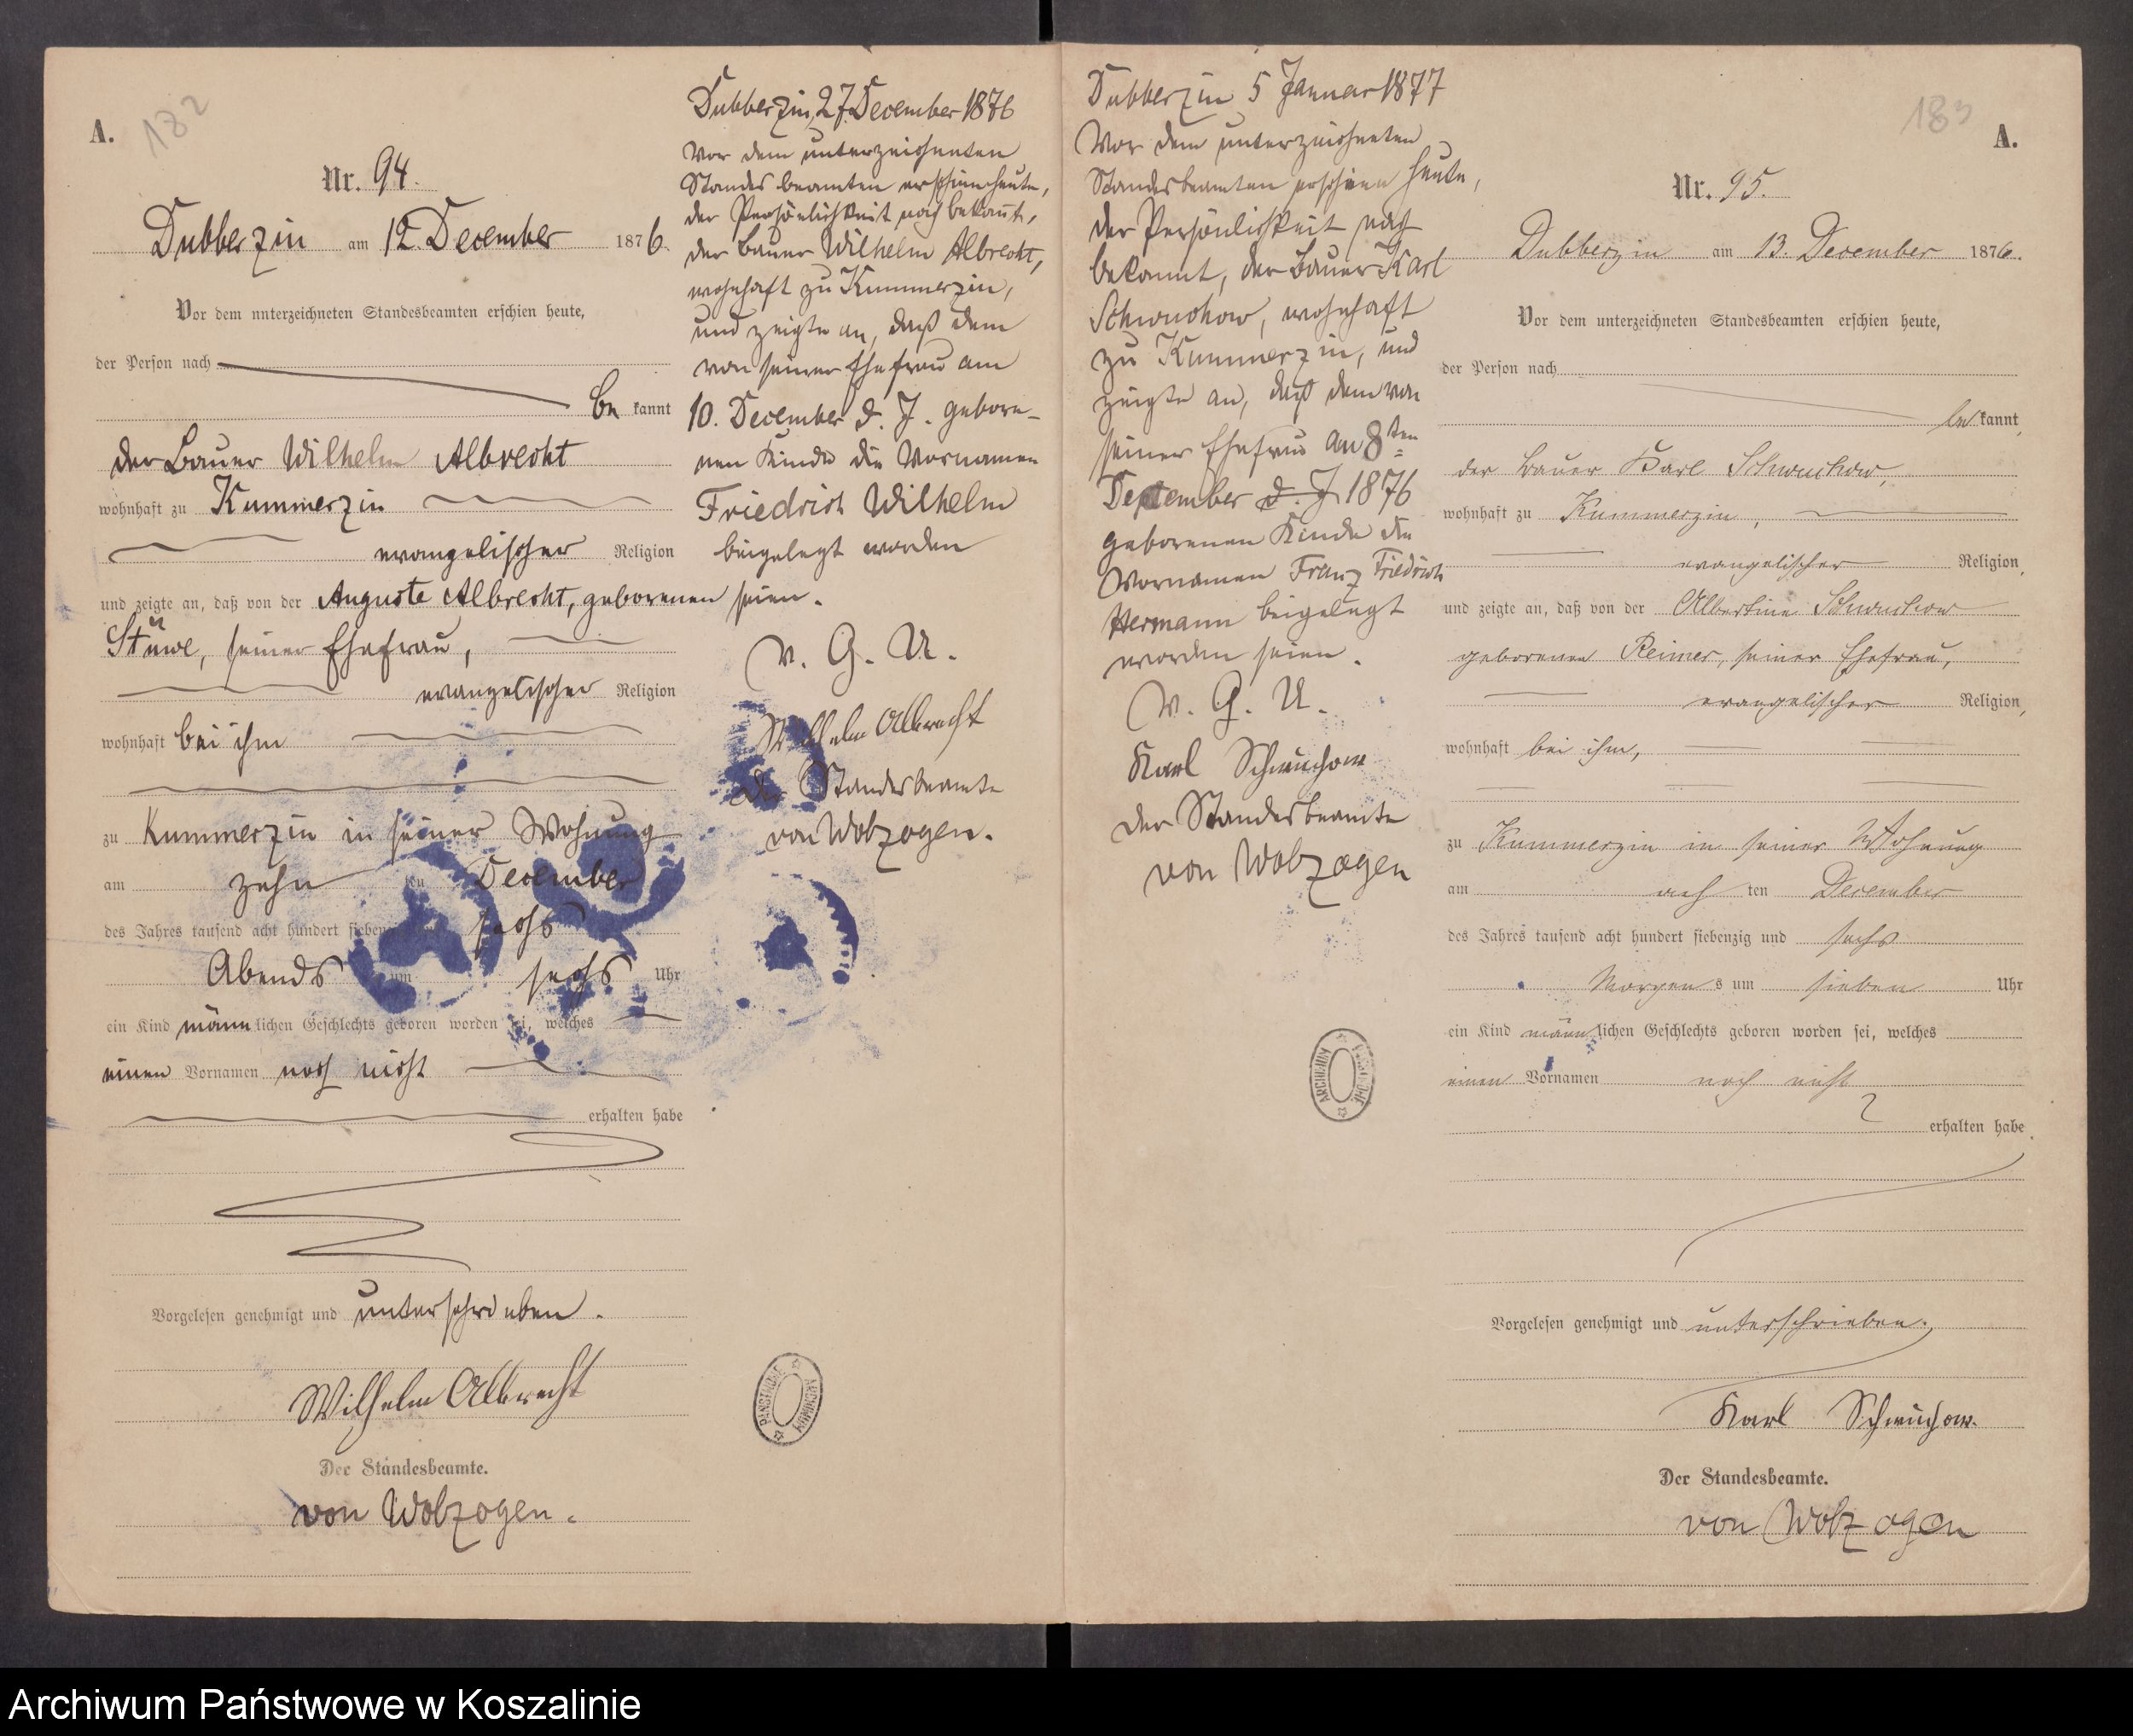 182
A.
Nr. 94.
Dubberzin am 12. December 1876.
Vor dem unterzeichneten Standesbeamten erschien heute,
der Person nach
be kannt
der Bauer Wilhelm Albrecht
wohnhaft zu Kummerzin
evangelischer Religion
und zeigte an, daß von der Auguste Albrecht, geborenen
Stüwe, seiner Ehefrau,
evangelischer Religion
wohnhaft bei ihm
zu Kummerzin in seiner Wohnung
am zehn ten December
des Jahres tausend acht hundert siebenzig und sechs
Abends um sechs Uhr
ein Kind männlichen Geschlechts geboren worden sei, welches
einen Vornamen noch nicht
erhalten habe
Vorgelesen genehmigt und unterschrieben.
Wilhelm Albrecht
Der Standesbeamte.
von Wolzogen.
Dubberzin, 27. December 1876
Vor dem unterzeichneten
Standesbeamten erschien heute,
der Persönlichkeit nach bekannt,
der Bauer Wilhelm Albrecht,
wohnhaft zu Kummerzin,
und zeigte an, daß dem
von seiner Ehefrau am
10. December d. J. gebore-
nen Kinde die Vornamen
Friedrich Wilhelm
beigelegt worden
seien.
V. G. U.
Wilhelm Albrecht
Der Standesbeamte
von Wolzogen.
ARCHIWUM PAŃSTWOWE
Dubberzin 5 Januar 1877
Vor dem unterzeichneten
Standesbeamten erschien heute,
der Persönlichkeit nach
bekannt, der Bauer Karl
Schwuchow, wohnhaft
zu Kummerzin, und
zeigte an, daß dem von
seiner Ehefrau am 8ten
December d. J. 1876
geborenen Kinde die
Vornamen Franz Friedrich
Hermann beigelegt
worden seien.
V. G. U.
Karl Schwuchow
Der Standesbeamte
von Wolzogen
ARCHIWUM PAŃSTWOWE
183
A.
Nr. 95.
Dubberzin am 13. December 1876.
Vor dem unterzeichneten Standesbeamten erschien heute,
der Person nach
be kannt,
der Bauer Karl Schwuchow,
wohnhaft zu Kummerzin,
evangelischer Religion,
und zeigte an, daß von der Albertine Schwuchow
geborenen Reimer, seiner Ehefrau,
evangelischer Religion,
wohnhaft bei ihm,
zu Kummerzin in seiner Wohnung
am ach ten December
des Jahres tausend acht hundert siebenzig und sechs
Morgens um sieben Uhr
ein Kind männlichen Geschlechts geboren worden sei, welches
einen Vornamen noch nicht
erhalten habe.
Vorgelesen genehmigt und unterschrieben.
Karl Schwuchow.
Der Standesbeamte.
von Wolzogen
Archiwum Państwowe w Koszalinie